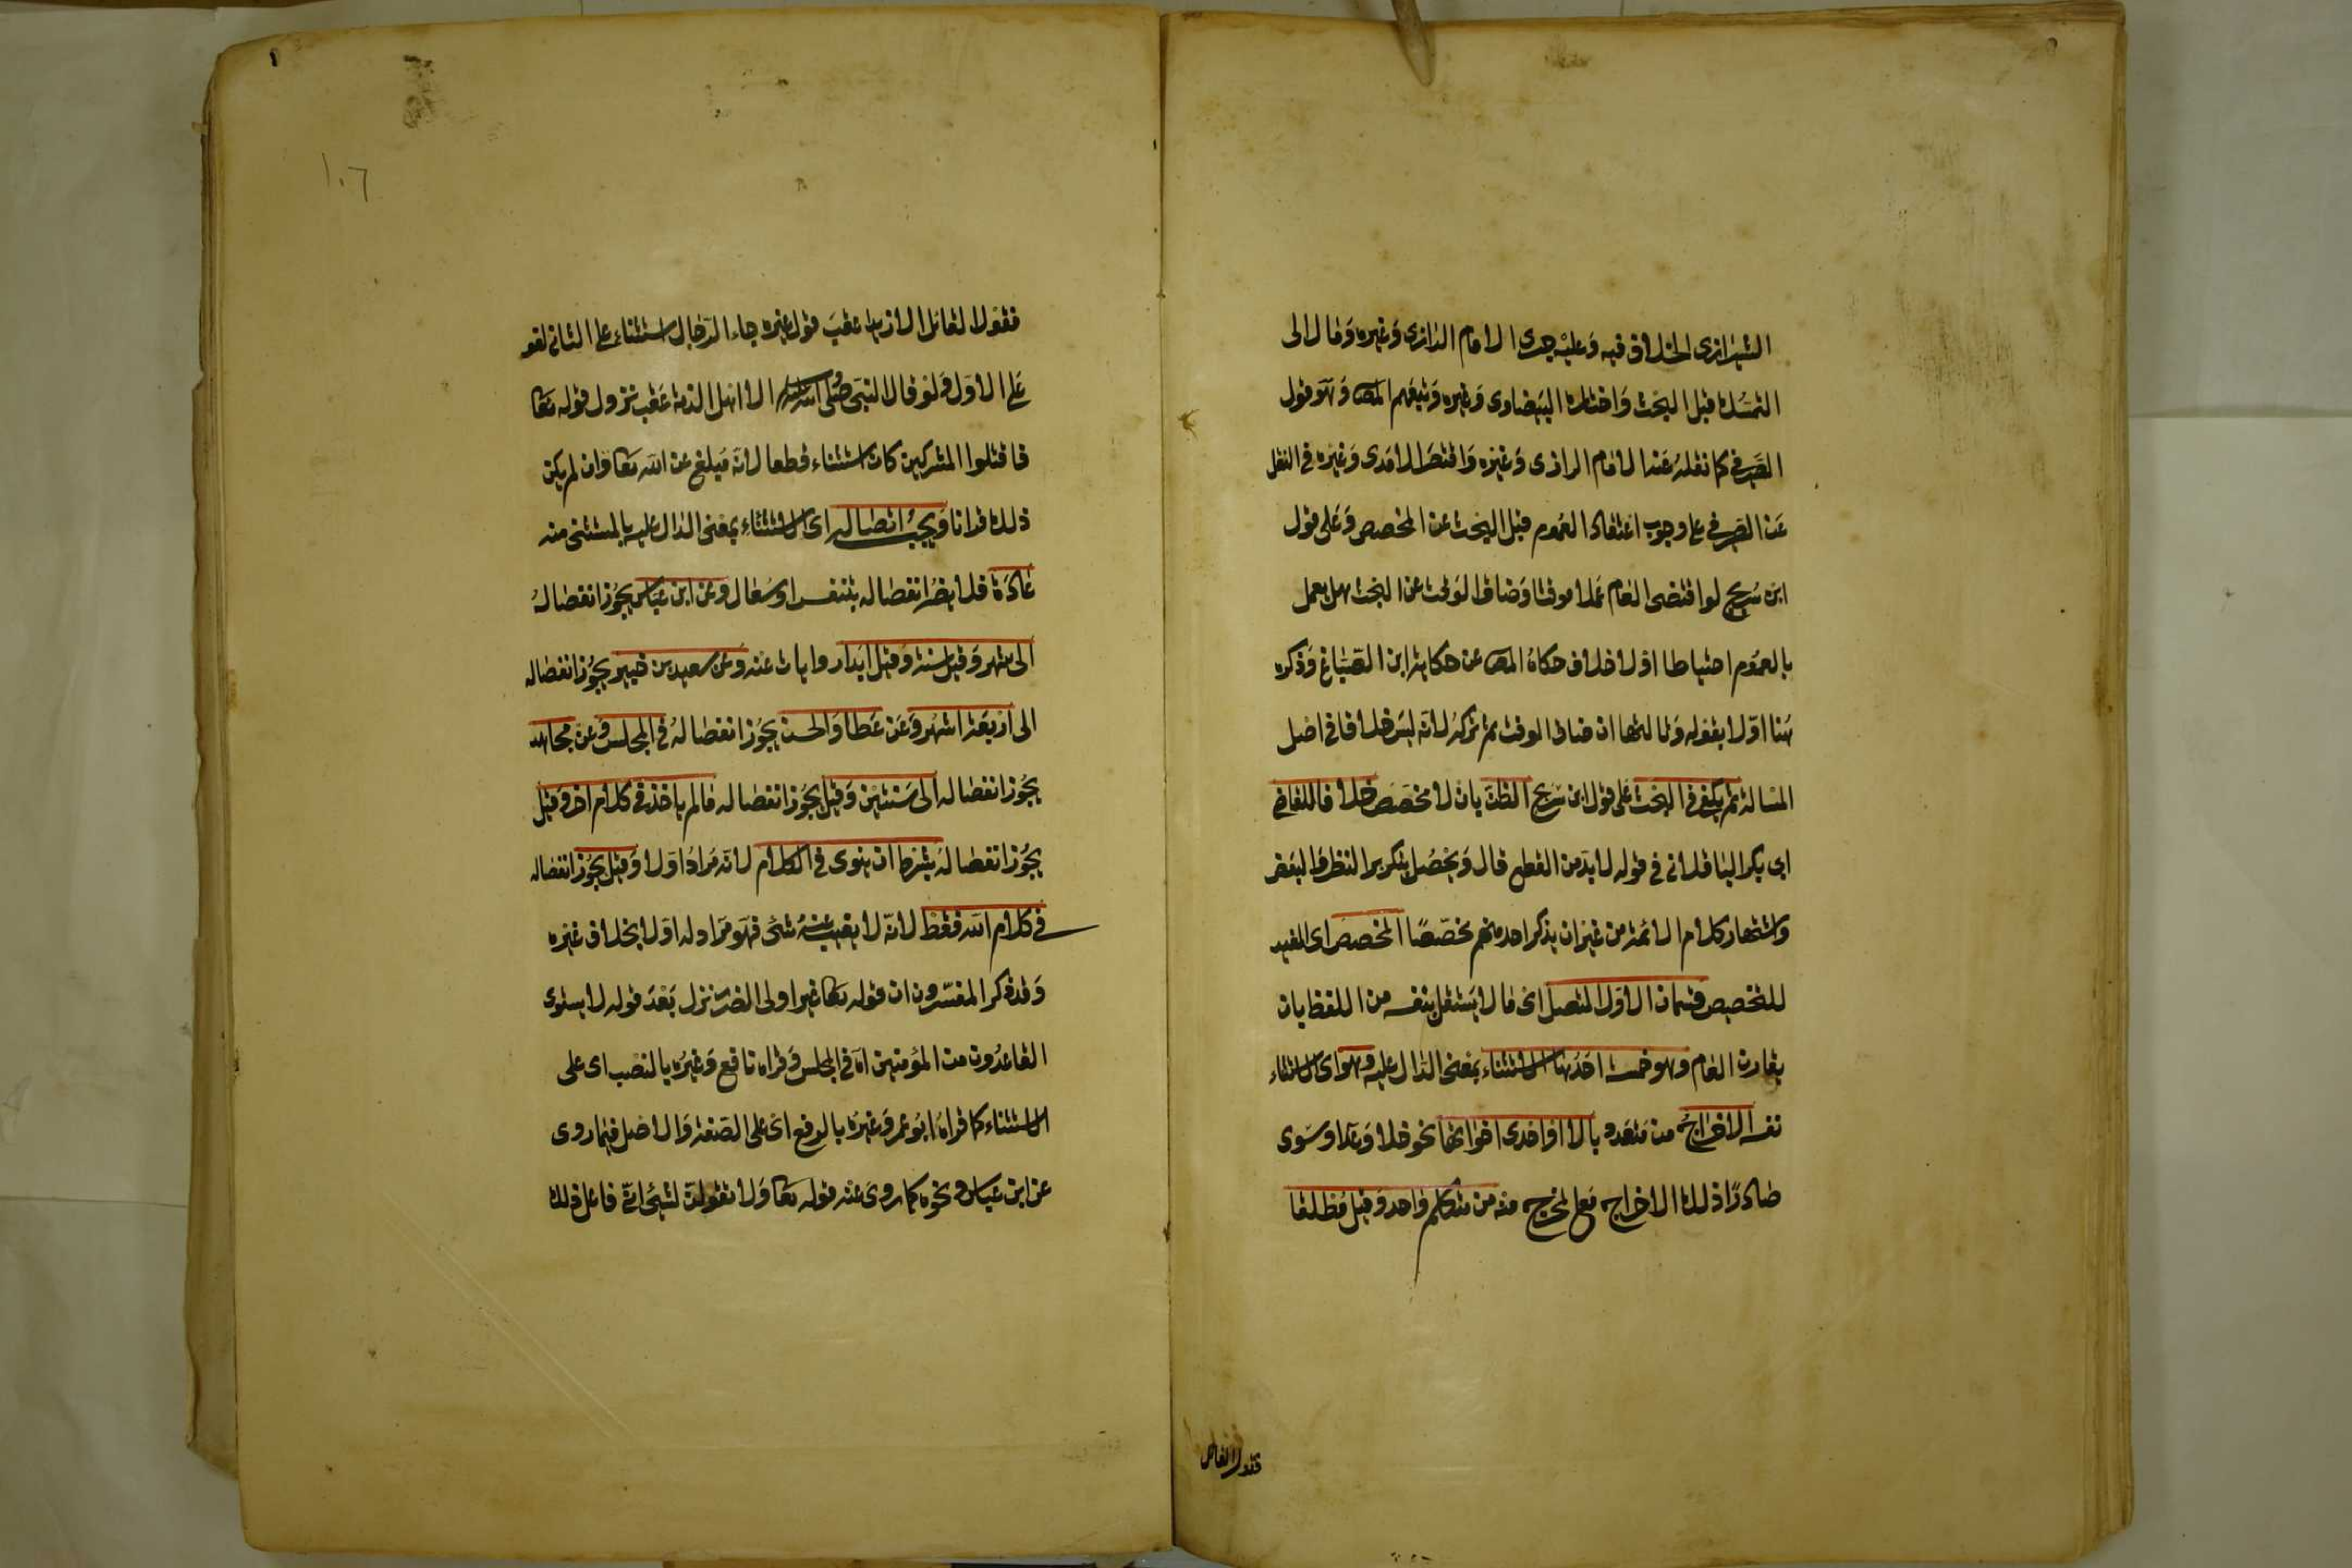 الشيرازى الخلاف فيه وعليه جرى الامام الرازى وغيره ومال الى
التمسك قبل البحث واختاره البيضاوى وغيره وتبعهم المصـ وهو قول
الصيرفى كما نقله عنه الامام الرازى وغيره واقتصر الامدى وغيره فى النقل
عن الصيرفى على وجوب اعتقاد العموم قبل البحث عن المخصص وعلى قول
ابن سريج لو اقتضى العام عملا موقتا وضاق الوقت عن البحث هل يعمل
بالعموم احتياطا او لا خلاف حكاه المصـ عن حكاية ابن الصباغ وذكره
هنا اولا بقوله وثالثها ان ضاق الوقت ثم تركه لانه ليس خلافا فى اصل
المسالة ثم يكفى فى البحث على قول ابن سريج الظن بان لا مخصص خلافا للقاضى
ابى بكر الباقلانى فى قوله لا بد من القطع قال ويحصل بتكرير النظر والبحث
واشتهار كلام الائمة من غير ان يذكر احد منهم مخصصا المخصص اى المفيد
للتخصيص قسمان الاول المتصل اى ما لا يستقل بنفسه من اللفظ بان
يقارن العام وهو خمسة احدها الاستثناء بمعنى الدال عليه وهو اى الاستثناء
نفسه الاخراج من متعدد بالا او احدى اخواتها نحو خلا وعدا وسوى
صادرا ذلك الاخراج مع المخرج منه من متكلم واحد وقيل مطلقا
فقول القائل
١٠٦
فقول القائل الا زيدا عقب قول غيره جاء الرجال استثناء على الثانى لغو
على الاول ولو قال النبى صلى الله عليه وسلم الا اهل الذمة عقب نزول قوله تعا
فاقتلوا المشركين كان استثناء قطعا لانه مبلغ عن الله تعا وان لم يكن
ذلك قرانا ويجب اتصاله اى الاستثناء بمعنى الدال عليه بالمستثنى منه
عادة فلا يضر انفصاله بتنفس او سعال وعن ابن عباس يجوز انفصاله
الى شهر وقيل سنة وقيل ابدا روايات عنه وعن سعيد بن جبير يجوز انفصاله
الى اربعة اشهر وعن عطا والحسن يجوز انفصاله فى المجلس وعن مجاهد
يجوز انفصاله الى سنتين وقيل يجوز انفصاله مالم ياخذ فى كلام اخر وقيل
يجوز انفصاله بشرط ان ينوى فى الكلام لانه مراد اولا وقيل يجوز انفصاله
فى كلام الله فقط لانه لا يغيب عنه شئ فهو مراد له اولا بخلاف غيره
وقد ذكر المفسرون ان قوله تعا غير اولى الضرر نزل بعد قوله لا يستوى
القاعدون من المؤمنين اه فى المجلس وقراه نافع وغيره بالنصب اى على
الاستثناء كما قراه ابو عمر وغيره بالرفع اى على الصفة والاصل فيما روى
عن ابن عباس ونحوه كما روى عنه قوله تعا ولا تقولن لشئ انى فاعل ذلك